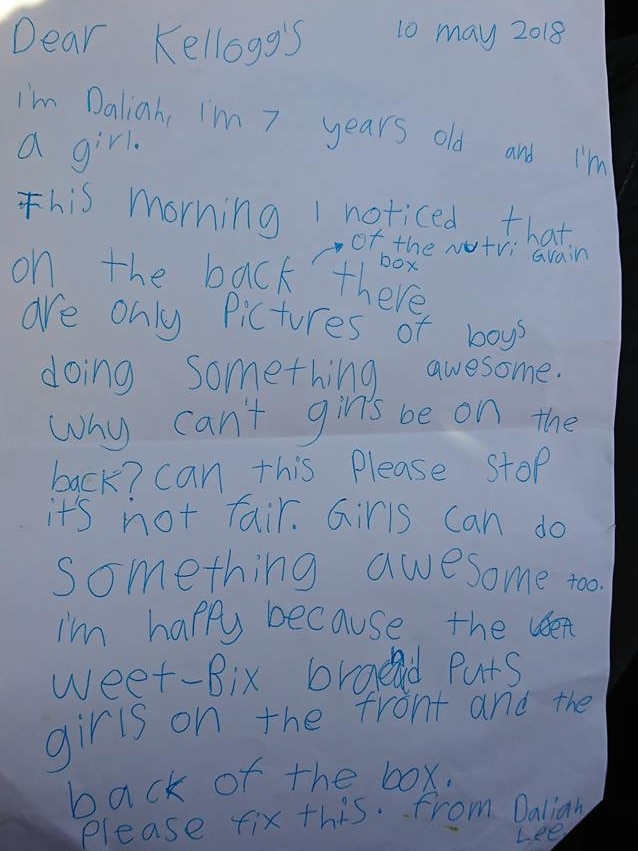 Dear Kellogg's 10 may 2018
I'm Daliah, I'm 7 years old and I'm
a girl.
This morning I noticed that
on the back of the nutri Grain
box there
are only Pictures of boys
doing something awesome.
why can't girls be on the
back? can this Please stop
it's not fair. Girls can do
something awesome too.
i'm happy because the
weet-Bix brand Puts
girls on the front and the
back of the box.
Please fix this. from Daliah
Lee